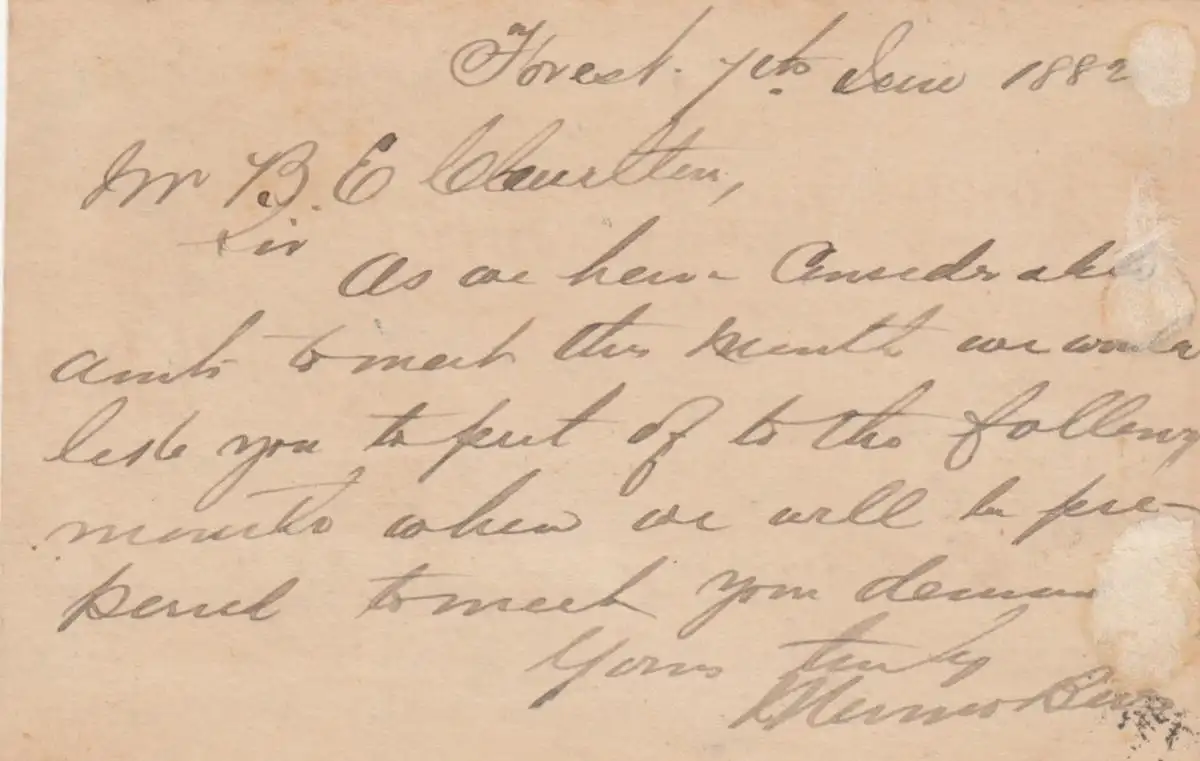 Forest. 7th June 1882
Mr B. E Charlton,
Sir
As we have Considerable
amts to meet this Month we would
like you to put of to the following
months when we will be pre-
pared to meet your
Yours truly